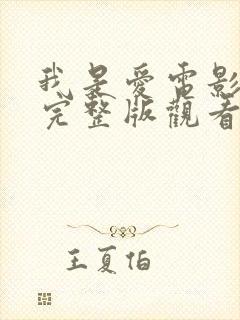 我是愛電影
完整版觀看
王夏伯